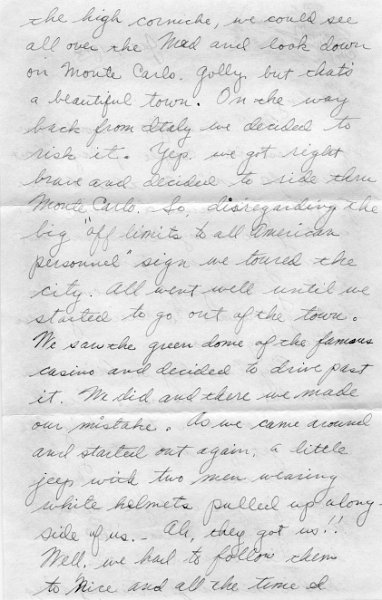 the high corniche, we could see
all over the Med and look down
on Monte Carlo. Golly but thats
a beautiful town. On the way
back from Italy we decided to
risk it. Yep, we got right
brave and decided to ride thru
Monte Carlo. So, disregarding the
big "off limits to all American
personnel" sign we toured the
city. All went well until we
started to go out of the town.
We saw the green dome of the famous
casino and decided to drive past
it. We did and there we made
our mistake. As we came around
and started out again, a little
jeep with two men wearing
white helmets pulled up along-
side of us. - Ah, they got us!!
Well, we had to follow them
to Nice and all the time I